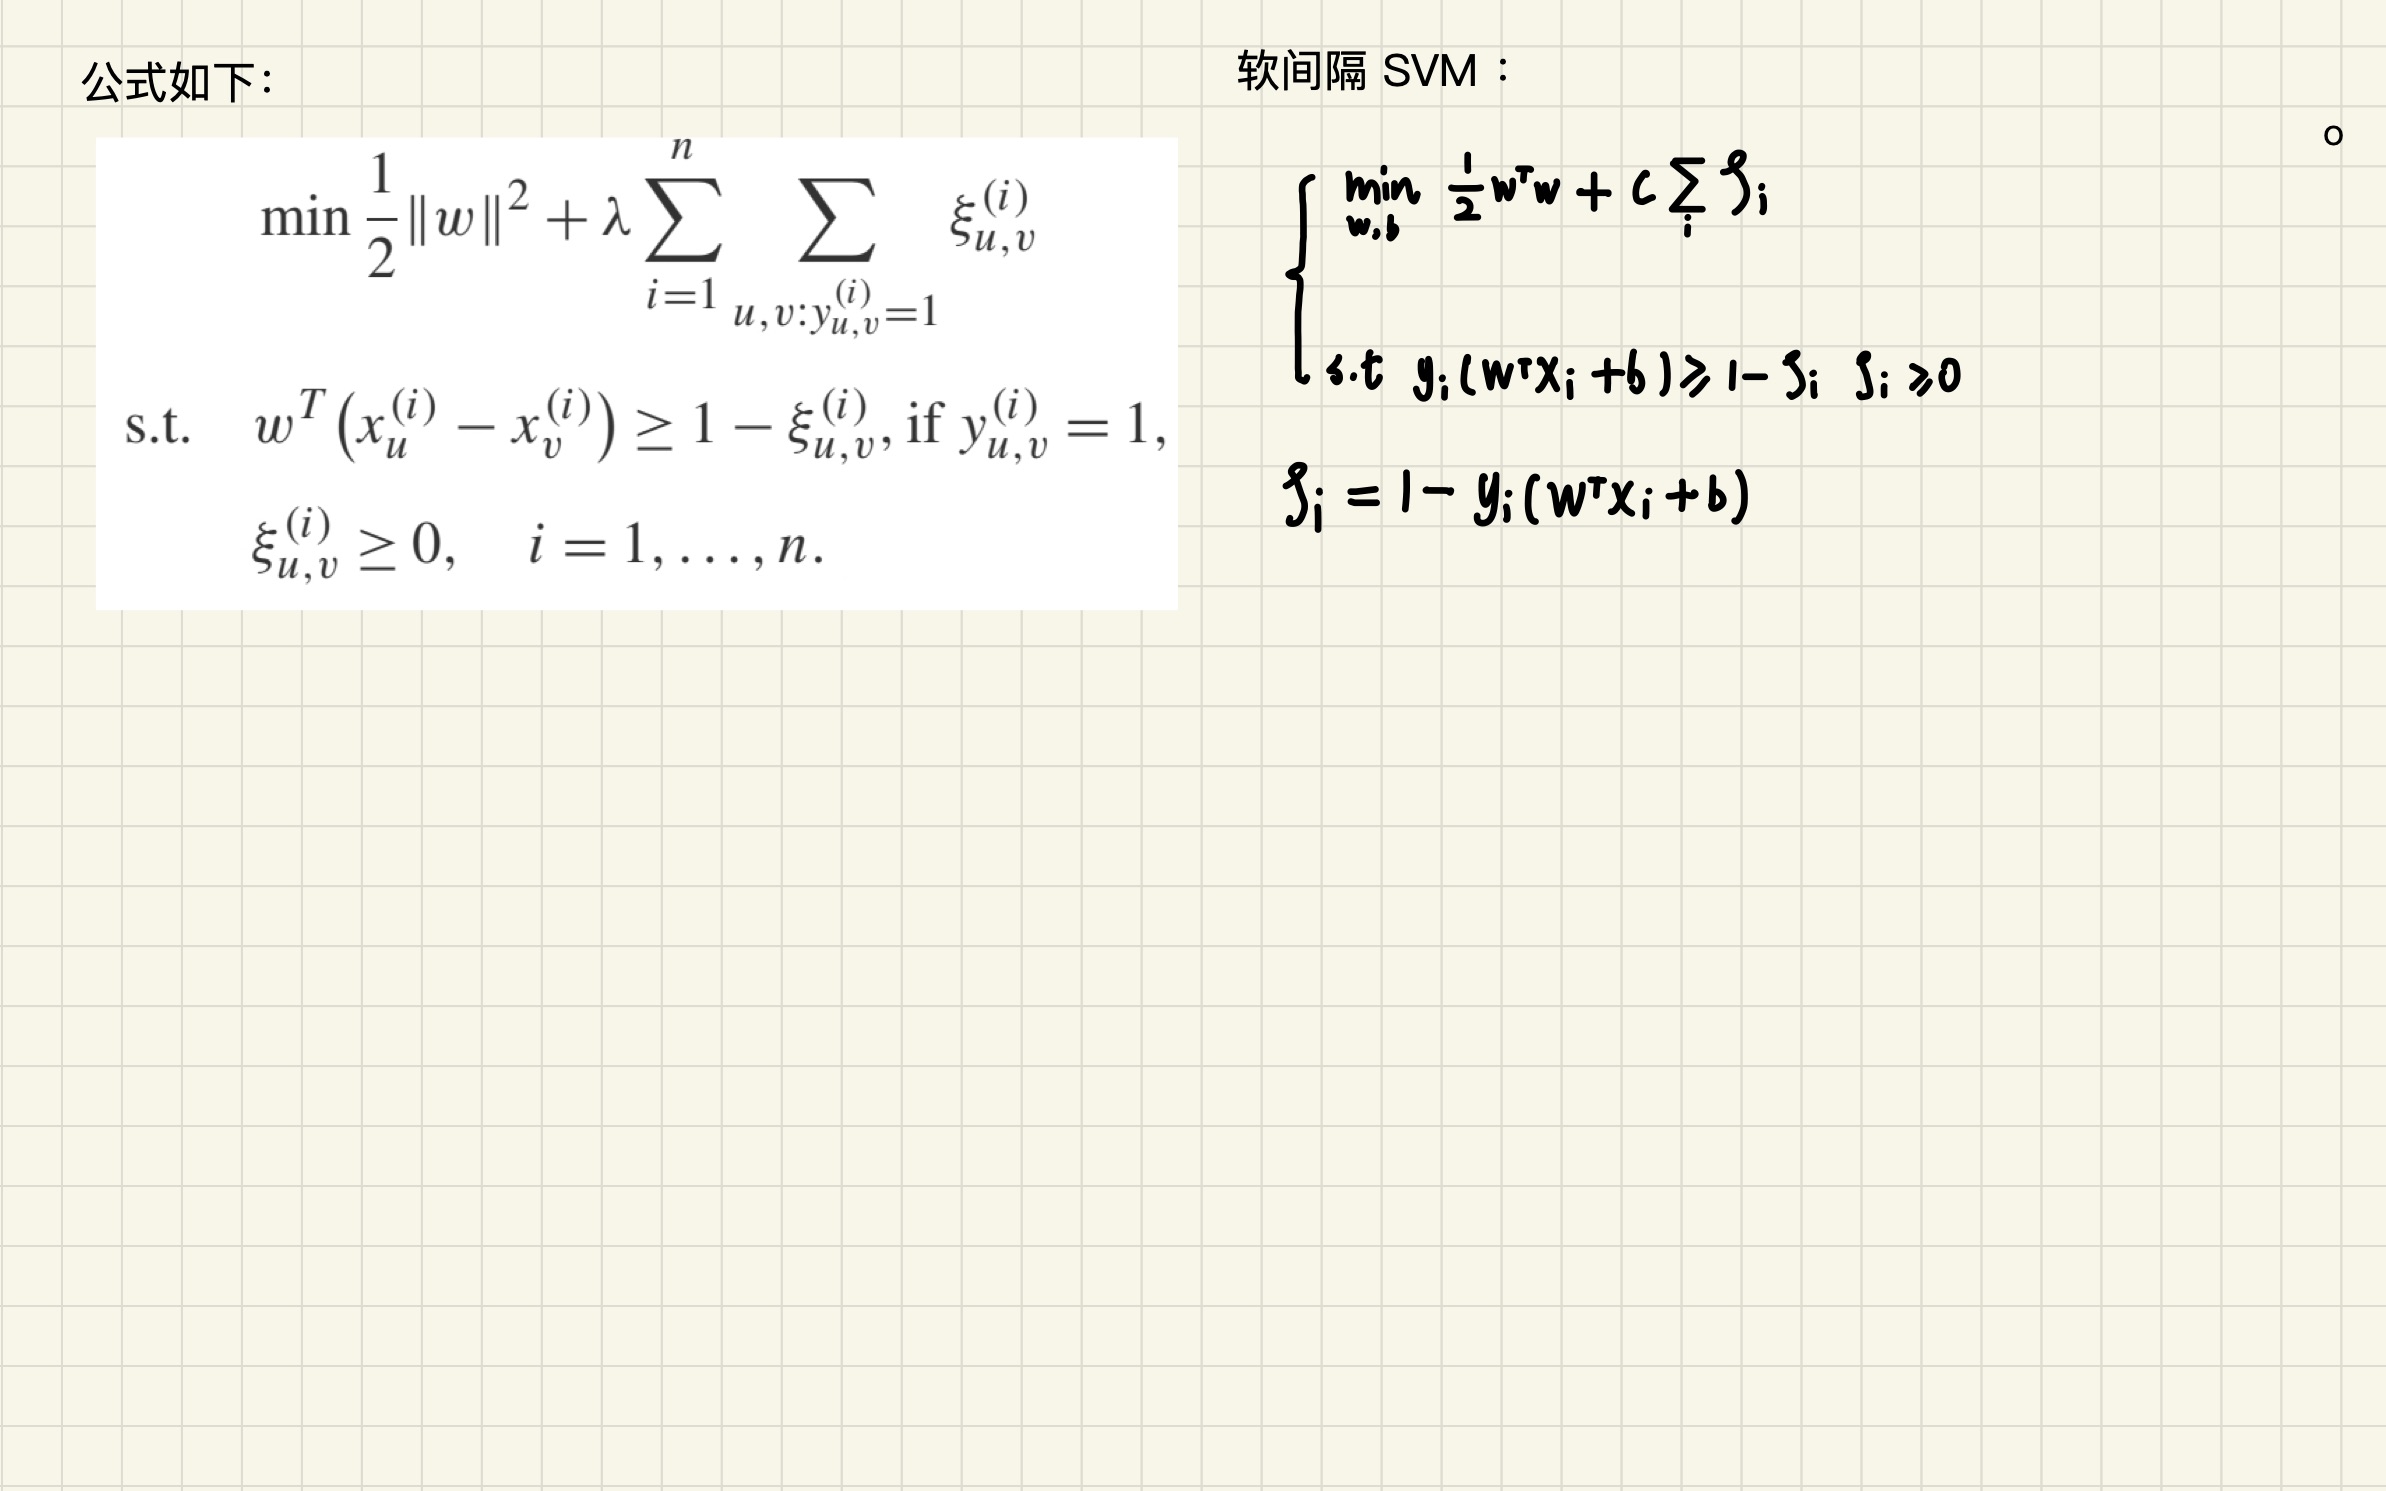 公式如下：
min 1/2 ‖w‖² + λ ∑_{i=1}^{n} ∑_{u,v:y_{u,v}^{(i)}=1} ξ_{u,v}^{(i)}
s.t. w^T(x_u^{(i)} − x_v^{(i)}) ≥ 1 − ξ_{u,v}^{(i)}, if y_{u,v}^{(i)} = 1,
ξ_{u,v}^{(i)} ≥ 0, i = 1, . . . , n.
软间隔 SVM ：
。
min_{w,b} 1/2 w^T w + C ∑_i ξ_i
s.t y_i(w^T x_i + b) ≥ 1 − ξ_i ξ_i ≥ 0
ξ_i = 1 − y_i(w^T x_i + b)